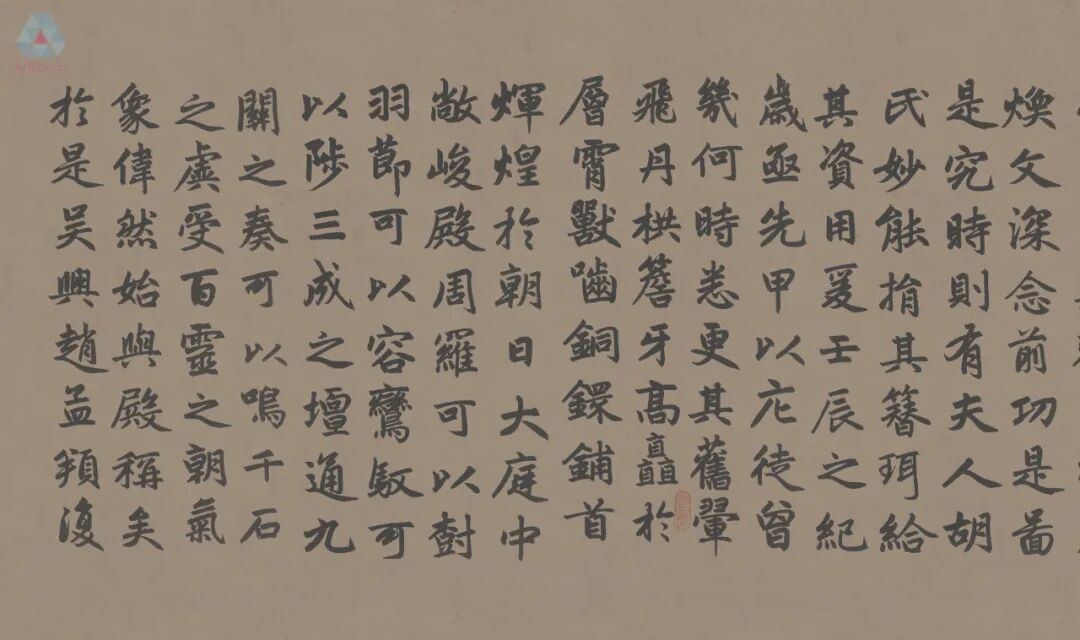 煥文深念前功是啚
是究時則有夫人胡
氏妙能捐其簪珥給
其資用爰壬辰之紀
歲亟先甲以庀徒曾
幾何時悉更其舊翬
飛丹栱簷牙高矗於
層霄獸嚙銅鐶鋪首
煇煌於朝日大庭中
敞峻殿周羅可以樹
羽節可以容鸞馭可
以陟三成之壇通九
關之奏可以鳴千石
之虡受百靈之朝氣
象偉然始與殿稱矣
於是吳興趙孟頫復